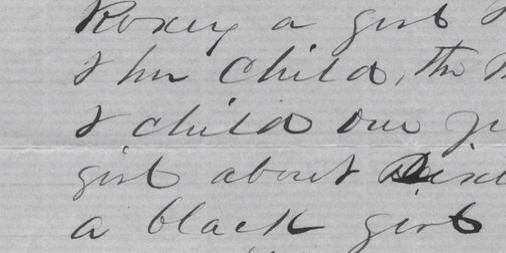 Roxey a girl
& her Child, the
& child one
girl about
a black girl